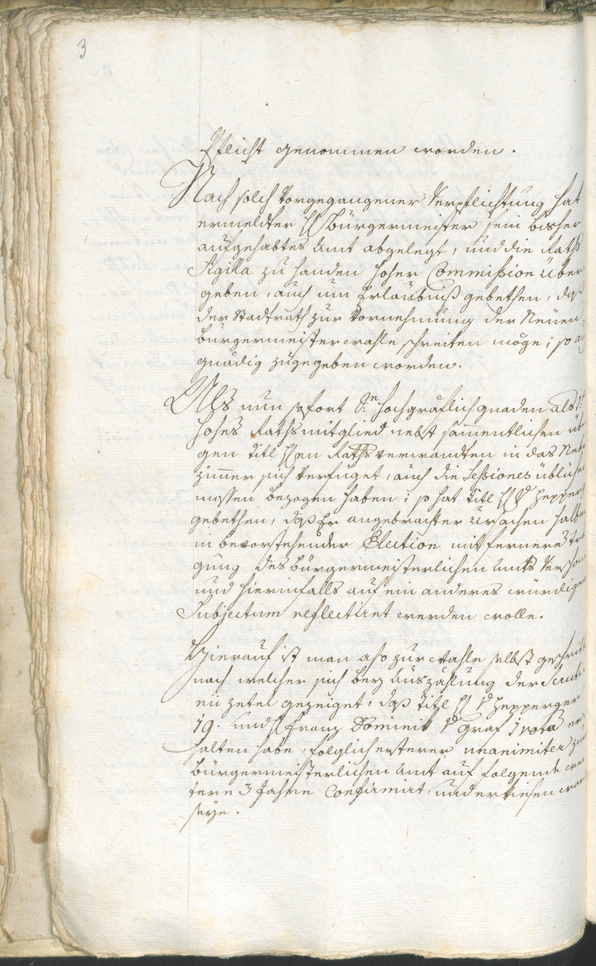 3
Pflicht genommen worden.
Nach solch vorgegangener Verpflichtung hat
ermeldter H Bürgermeister sein bisher
aufgehabtes Amt abgelegt, und die Raths
Sigilla zu handen hoher Commission über
geben, auch um Erlaubnis gebethen, daß
der Stadtrath zur Vornehmung der Neüen
Bürgermeisterwahle schreiten möge; so a
gnädig zugegeben worden.
Als nun sofort Sr. hochgräflich gnaden als
hohes Rathsmitglied nebst sammentlichen
gen Titl Hrn Rathsverwandten in das Neb
zimmer sich verfüget, auch die Sessiones üblich
massen bezogen haben; so hat Titl H v Hepper
gebethen, daß Er angebrachter Ursachen halbe
in bevorstehender Election mit fernere
gung des Bürgermeisterlichen Amts verscho
und hierinfalls auf ein anderes würdige
Subjectum reflectirt werden wolle.
Hierauf ist man also zur wahle selbst geschrit
nach welcher sich bey Auszählung der Scruti
en zetel gezeiget, daß Titl H v Hepperger
19. und H Franz Dominic v Graf 1 vota er
halten habe, folglich ersterer unanimiter zu
Bürgermeisterlichen Amt auf folgende
tere 3 Jahre Confirmirt, und erkiesen wor
seye.